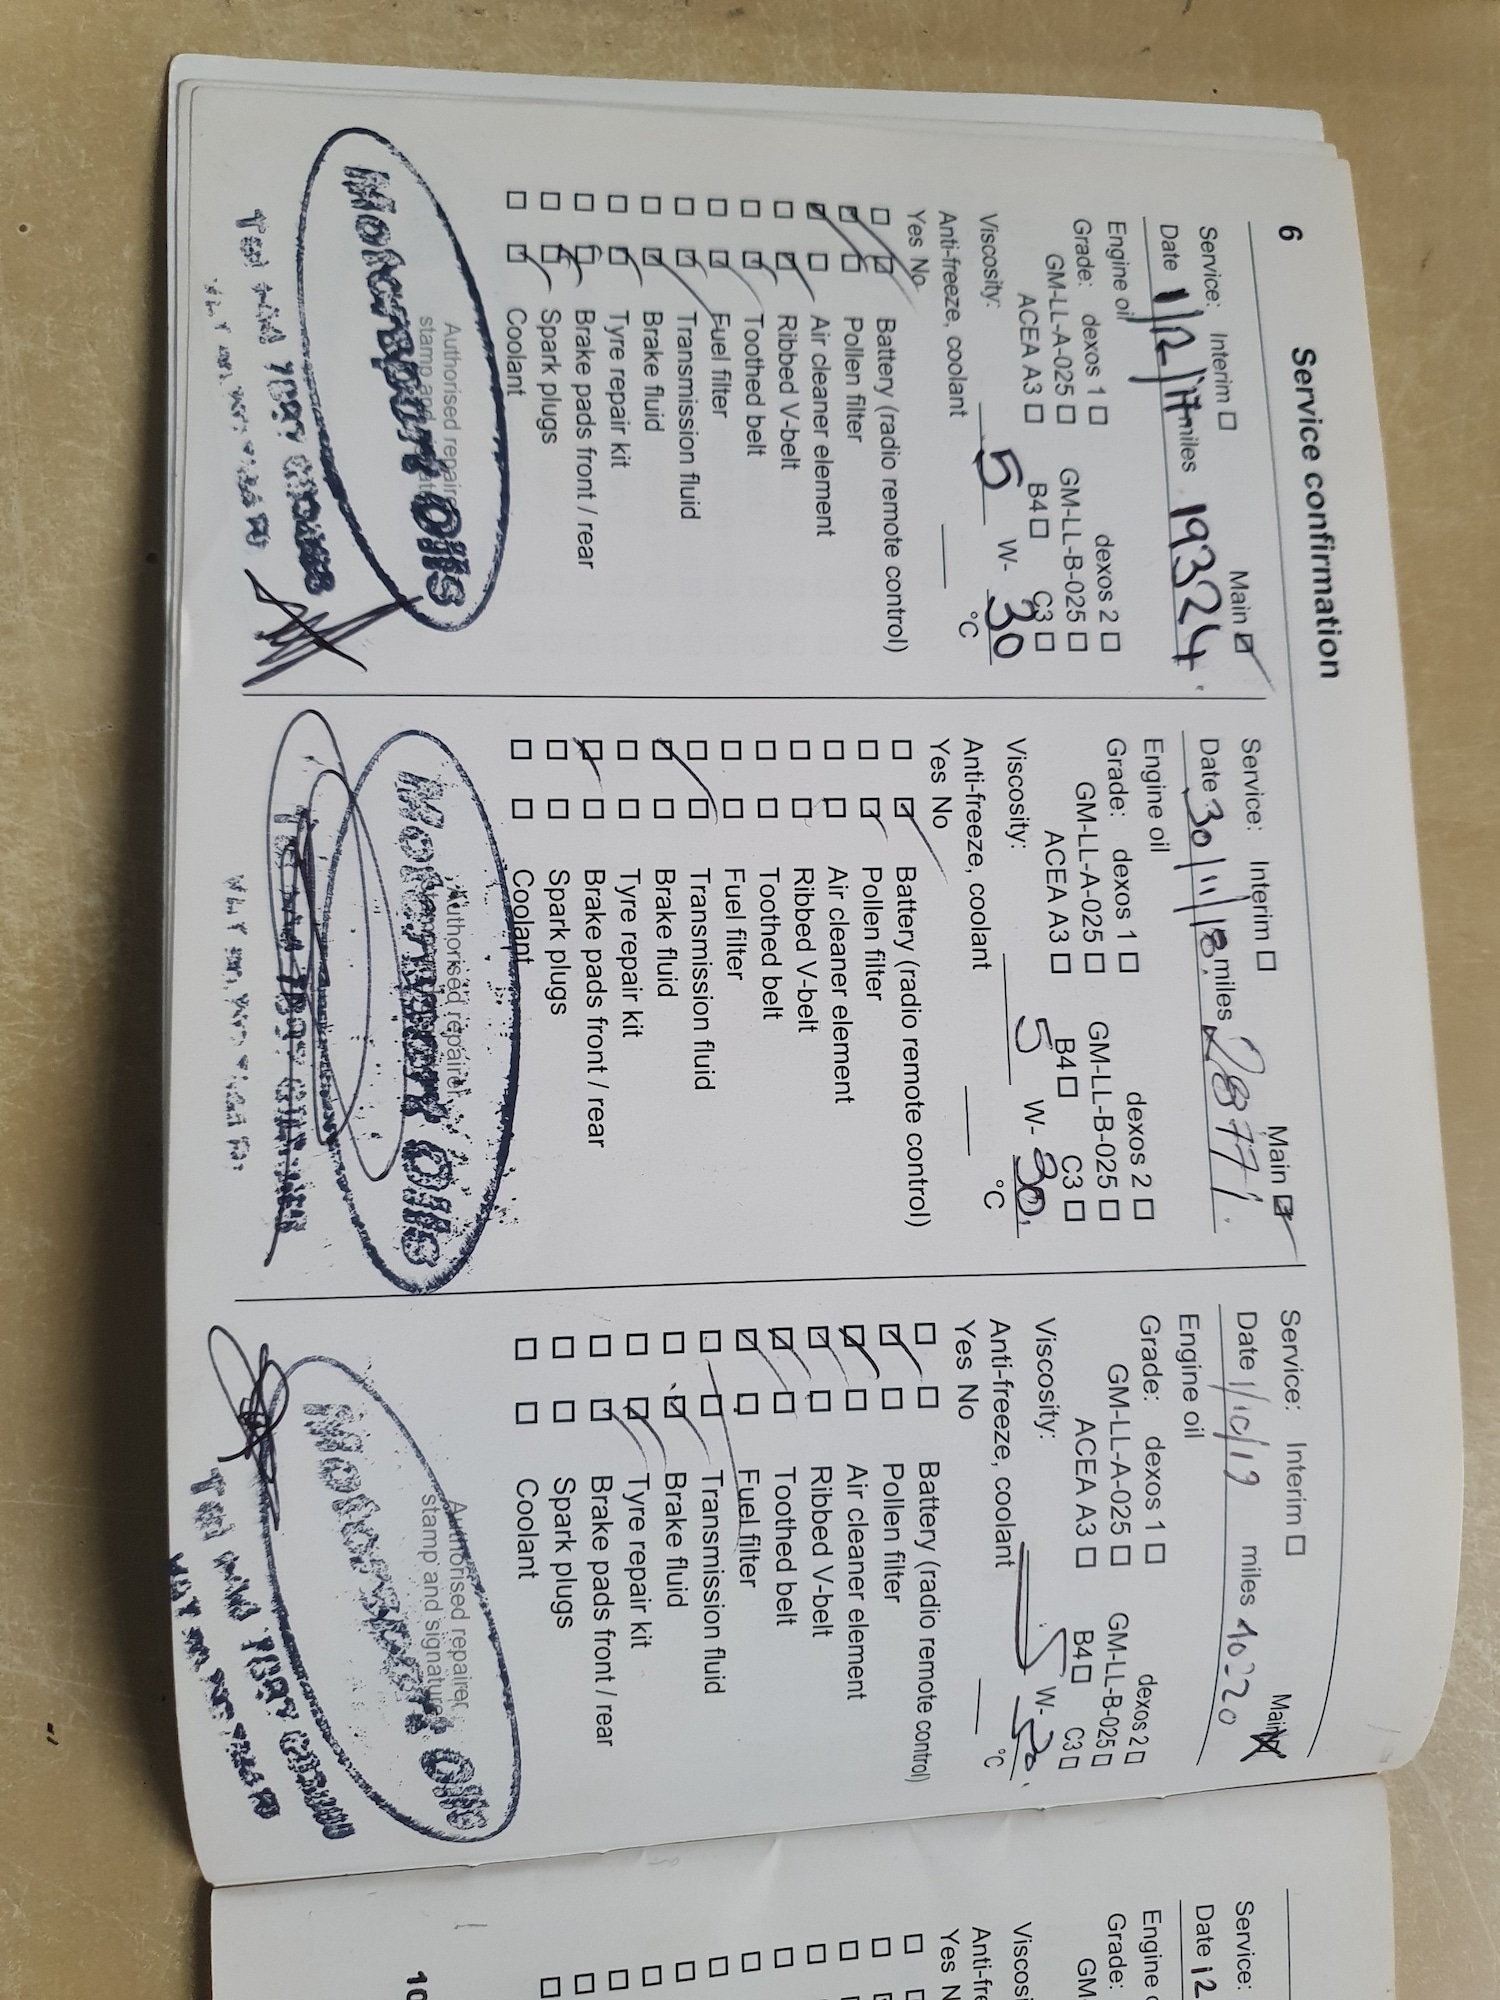 6
Service confirmation
Service: Interim ☐ Main ☑
Date 1/12/17 miles 19324
Engine oil
Grade: dexos 1 ☐ dexos 2 ☐
GM-LL-A-025 ☐ GM-LL-B-025 ☐
ACEA A3 ☐ B4 ☐ C3 ☐
Viscosity: 5 W- 30
Anti-freeze, coolant °C
Yes No
Battery (radio remote control)
Pollen filter
Air cleaner element
Ribbed V-belt
Toothed belt
Fuel filter
Transmission fluid
Brake fluid
Tyre repair kit
Brake pads front / rear
Spark plugs
Coolant
Authorised repairer
stamp and
Motorsport Oils
Service: Interim ☐ Main ☑
Date 30/11/18 miles 28771
Engine oil
Grade: dexos 1 ☐ dexos 2 ☐
GM-LL-A-025 ☐ GM-LL-B-025 ☐
ACEA A3 ☐ B4 ☐ C3 ☐
Viscosity: 5 W- 30
Anti-freeze, coolant °C
Yes No
Battery (radio remote control)
Pollen filter
Air cleaner element
Ribbed V-belt
Toothed belt
Fuel filter
Transmission fluid
Brake fluid
Tyre repair kit
Brake pads front / rear
Spark plugs
Coolant
Authorised repairer
Motorsport Oils
Service: Interim ☐ Main ☒
Date 1/10/19 miles 40220
Engine oil
Grade: dexos 1 ☐ dexos 2 ☐
GM-LL-A-025 ☐ GM-LL-B-025 ☐
ACEA A3 ☐ B4 ☐ C3 ☐
Viscosity: 5 W- 30
Anti-freeze, coolant °C
Yes No
Battery (radio remote control)
Pollen filter
Air cleaner element
Ribbed V-belt
Toothed belt
Fuel filter
Transmission fluid
Brake fluid
Tyre repair kit
Brake pads front / rear
Spark plugs
Coolant
Authorised repairer
stamp and signature
Motorsport Oils
Service:
Date 12
Engine
Grade:
GM-
Viscosi
Anti-fre
Yes N
10